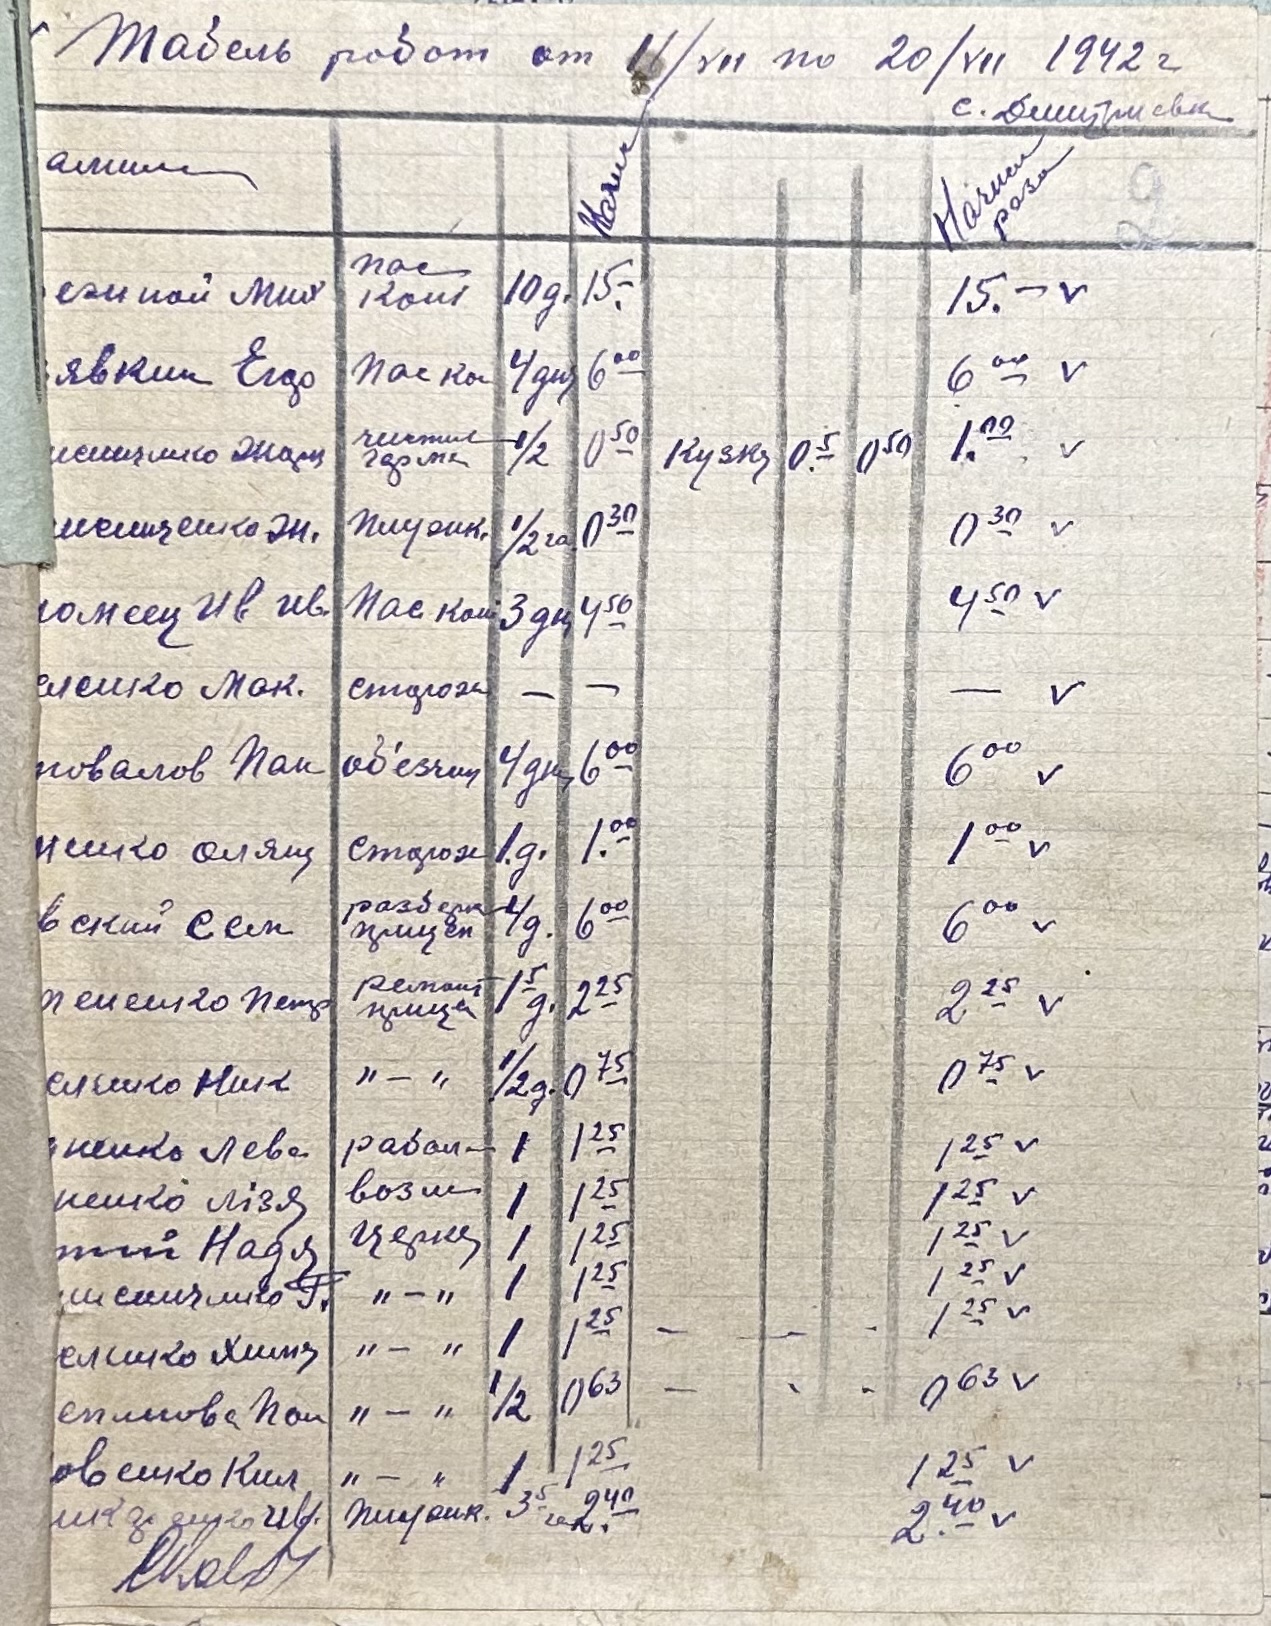 Табель работ от 11/VII по 20/VII 1942 г
с. Дмитриевк
амили Начис Начис раза 2
ежной Мих пас кон 10 д. 15.- 15.- v
явкин Егдо Пас кон 4 дн 6 00 6 00 v
чистил гарма 1/2 0 50 Кузку 0.5 0 50 1.00 v
исниченко Ж. Плужик. 1/2 га 0 30 0 30 v
ломеец Ив Ив. Пас кон 3 дн 4 50 4 50 v
еленко Мак. сторож — — — v
повалов Пан об'езчиц 4 дн 6 00 6 00 v
ненко Оляна сторож 1.д. 1.00 1 00 v
вский Сем разборк прицеп 4 д. 6 00 6 00 v
пененко Петр ремонт прицеп 1 5 д. 2 25 2 25 v
еленко Ник " — " 1/2 д. 0 75 0 75 v
ненко Лева работ 1 1 25 1 25 v
ненко Ліза возле 1 1 25 1 25 v
Надя Церкв 1 1 25 1 25 v
исниченко Г. " — " 1 1 25 1 25 v
еленко Химa " — " 1 1 25 - - - 1 25 v
Пол " — " 1/2 0 63 - - - 0 63 v
овенко Кил " — " 1 1 25 1 25 v
Ив. Плужик. 3 5 га 2.40 2.40 v